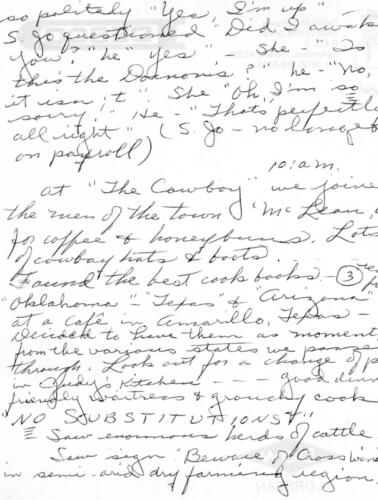 so politely "Yes, I'm up"
S. Jo questioned "Did I awake
you?" "he" Yes", - She - "Is
this the Donnons?" he - "No,
it isn't" She "Oh, I'm so
sorry." He - "That's perfectly
all right" (S. Jo - no longer
on payroll)
10: a.m.
at "The Cowboy" we joine
the men of the town "McLean,
for coffee & honeybuns. Lots
of cowboy hats & boots.
Found the best cook books - (3)
"Oklahoma" "Texas" & "Arizona"
at a café in Amarillo, Texas -
Decided to have them as moment
from the various states we passe
through. Look out for a change of p
in Judy's Kitchen - - - good dinn
friendly waitress & grouchy cook
"NO SUBSTITUTIONS"
Saw enormous herd of cattle
Saw sign "Beware of Crosswind
in semi-arid dry farming region.